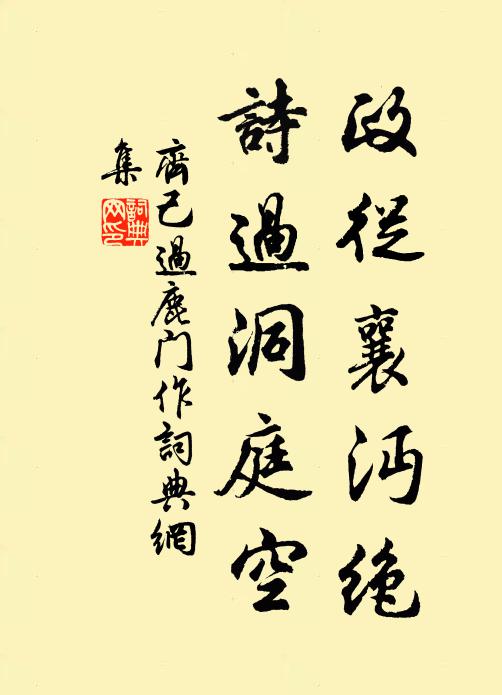 政從襄沔絶
詩過洞庭空
齊己過鹿門作詞典網
集
詞典網印